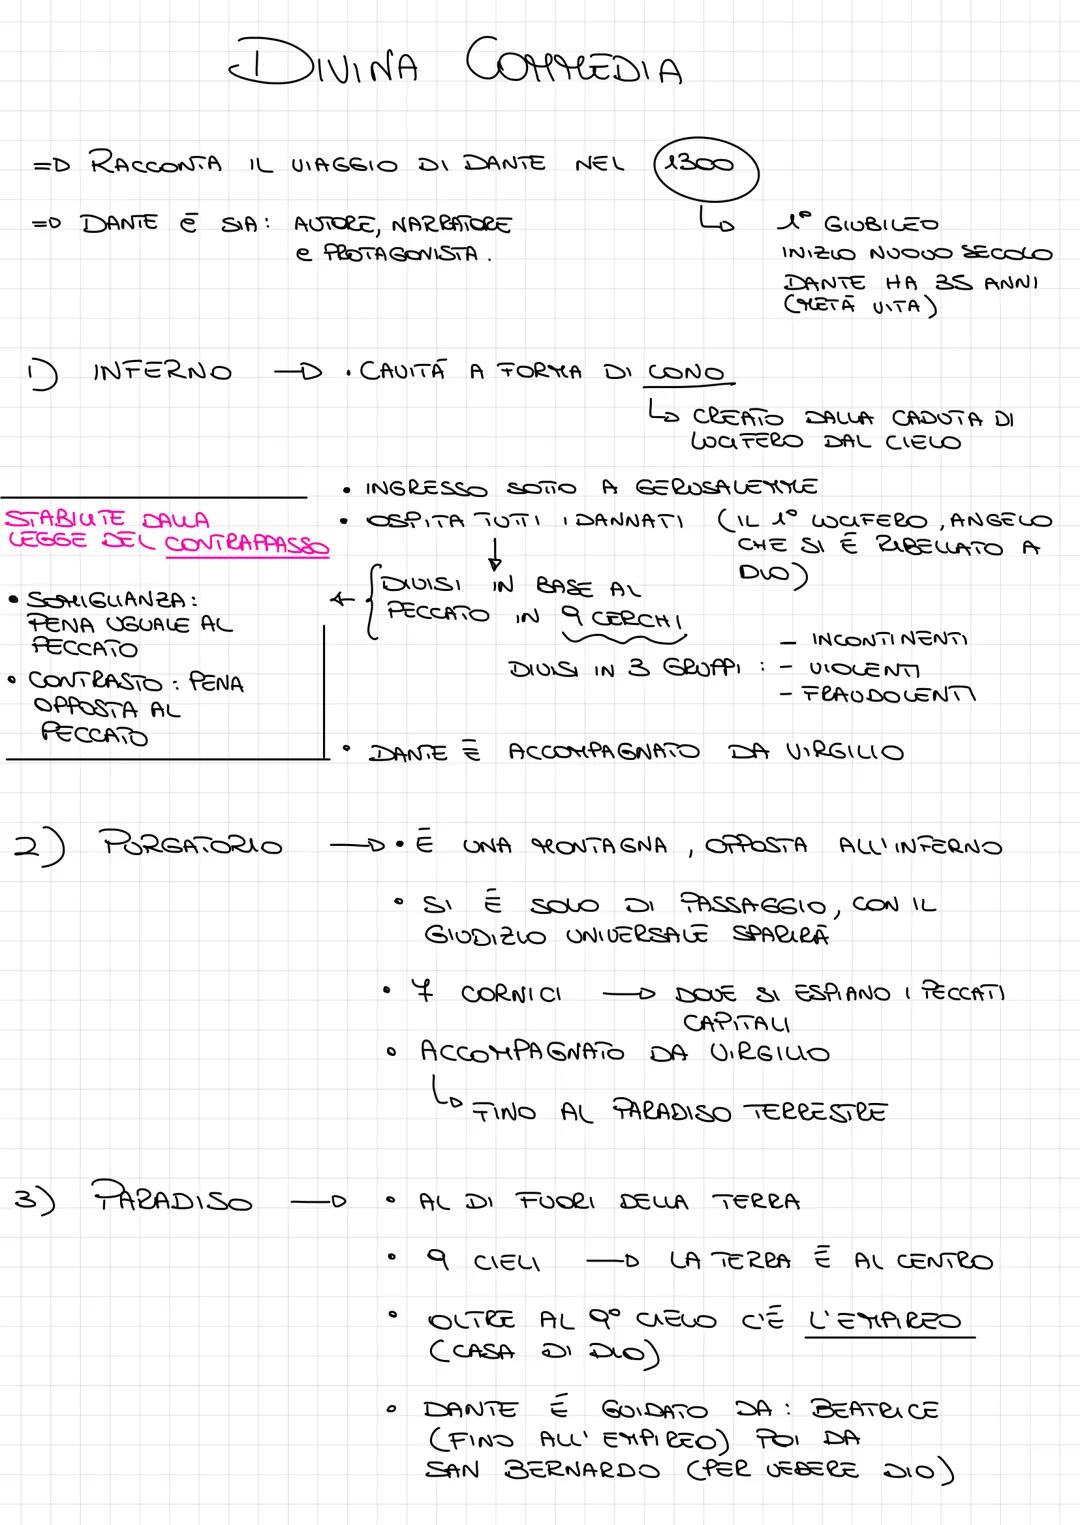 DIVINA COMMEDIA
=D RACCONTA IL VIAGGIO DI DANTE NEL 1300
=D DANTE È SIA: AUTORE, NARRATORE
e PROTAGONISTA.
1° GIUBILEO
INIZIO NUOVO SECOLO
DANTE HA 35 ANNI
(METÀ VITA)
1) INFERNO → • CAVITÀ A FORMA DI CONO
CREATO DALLA CADUTA DI
LUCIFERO DAL CIELO
• INGRESSO SOTTO A GERUSALEMME
• OSPITA TUTTI I DANNATI (IL 1° LUCIFERO, ANGELO
CHE SI È RIBELLATO A
DIO)
DIVISI IN BASE AL
PECCATO IN 9 CERCHI
DIVISI IN 3 GRUPPI : - INCONTINENTI
- VIOLENTI
- FRAUDOLENTI
STABILITE DALLA
LEGGE DEL CONTRAPPASSO
• SOMIGLIANZA:
PENA UGUALE AL
PECCATO
• CONTRASTO: PENA
OPPOSTA AL
PECCATO
• DANTE È ACCOMPAGNATO DA VIRGILIO
2) PURGATORIO → • È UNA MONTAGNA, OPPOSTA ALL'INFERNO
• SI È SOLO DI PASSAGGIO, CON IL
GIUDIZIO UNIVERSALE SPARIRÀ
• 7 CORNICI → DOVE SI ESPIANO I PECCATI
CAPITALI
• ACCOMPAGNATO DA VIRGILIO
FINO AL PARADISO TERRESTRE
3) PARADISO → • AL DI FUORI DELLA TERRA
• 9 CIELI → LA TERRA È AL CENTRO
• OLTRE AL 9° CIELO C'È L'EMPIREO
(CASA DI DIO)
• DANTE È GUIDATO DA: BEATRICE
(FINO ALL'EMPIREO) POI DA
SAN BERNARDO (PER VEDERE DIO)